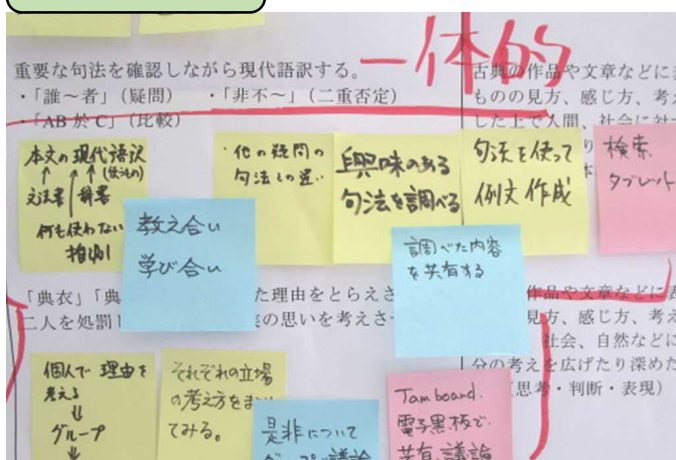 一体的
重要な句法を確認しながら現代語訳する。
・「誰～者」（疑問）　・「非不～」（二重否定）
・「AB於C」（比較）
古典の作品や文章などに
ものの見方、感じ方、考
した上で人間、社会に対
本文の現代語訳
文法書 辞書
何も使わない
推測
・他の疑問の
句法との違い
興味のある
句法を調べる
句法を使って
例文作成
検索
タブレット
教え合い
学び合い
調べた内容
を共有する
「典衣」「典
た理由をとらえさ
二人を処罰
の思いを考えさ
作品や文章などに表
見方、感じ方、考え
社会、自然などに
分の考えを広げたり深めた
（思考・判断・表現）
個人で 理由を
考える
グループ
それぞれの立場
の考え方をま
てみる。
是非について
グループ議論
Jamboard.
電子黒板で
共有、議論